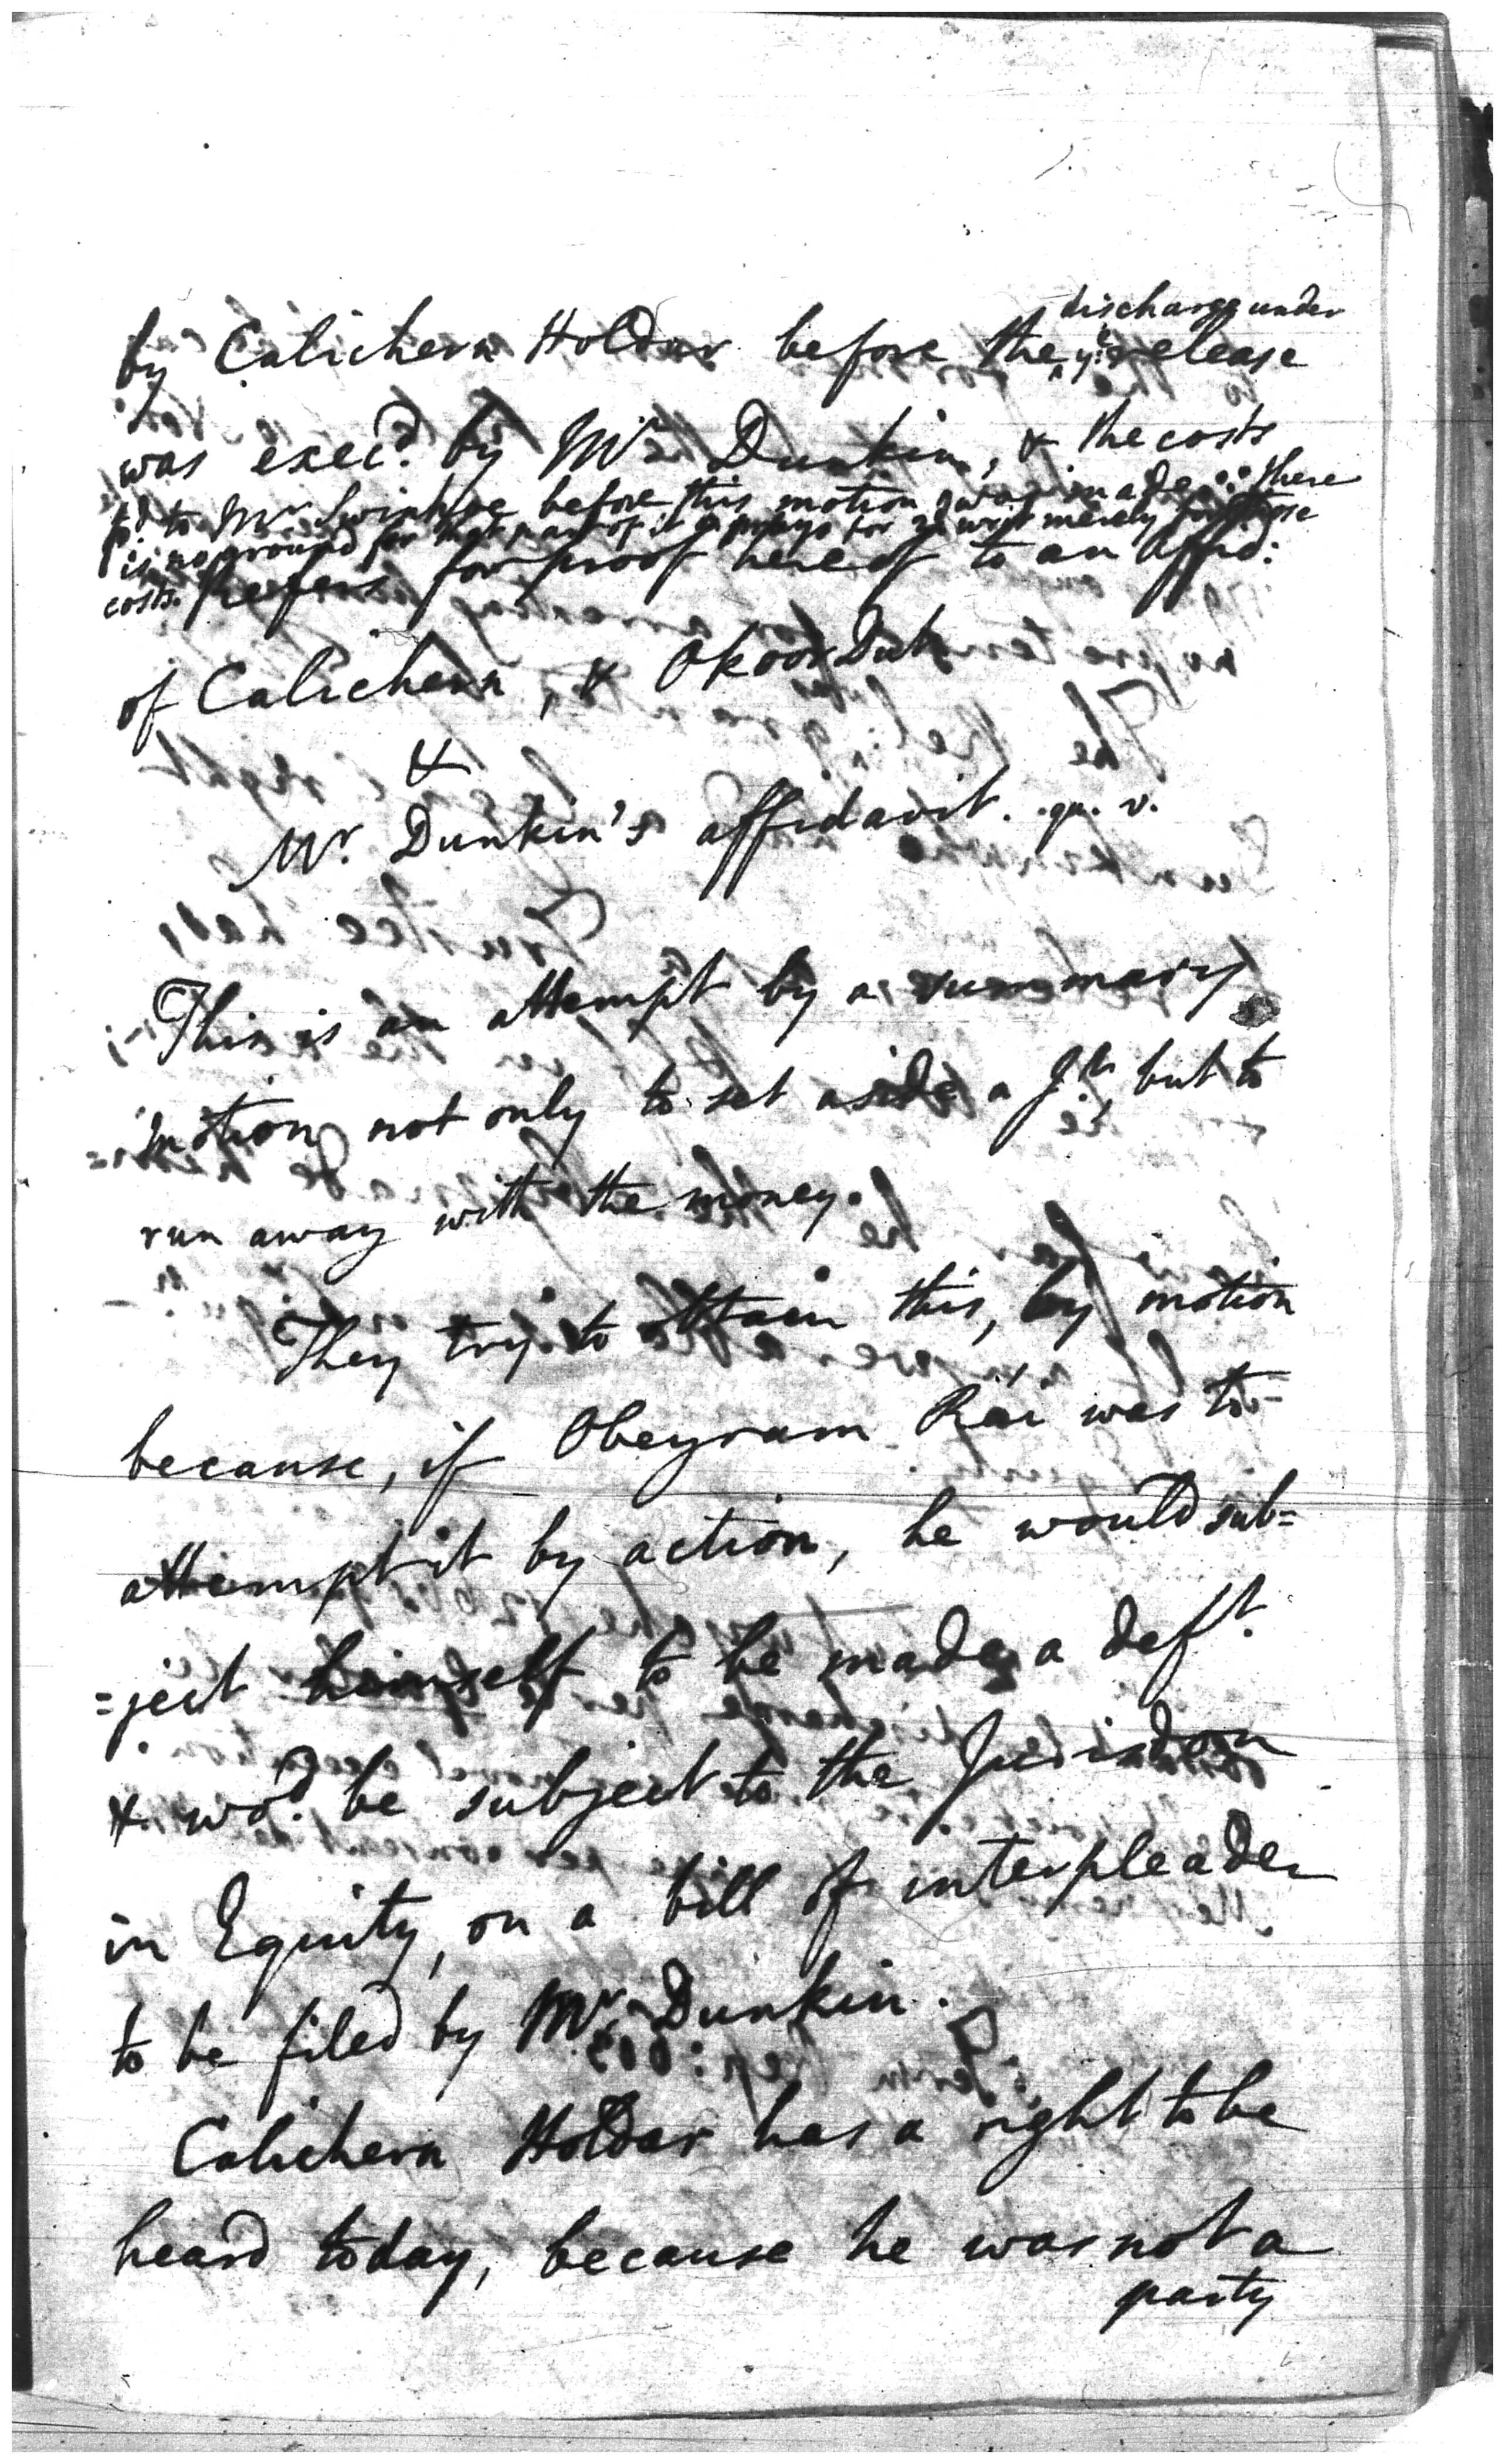 by Calichern Holdar before the ^discharge under ye^ release
was exec'd. by Mr. Dunkin, & the costs
pd to Mr Swinhoe before this motion was made ∴ there
is no ground for that part of it prays for writ merely for those
costs. Refers for proof hereof to an Affid:
of Calichern, & Okoor Dutt
&
Mr. Dunkin's affidavit. qu. v.
This is an attempt by a summary
motion not only to set aside a Jt, but to
run away with the money.
They try to attain this, by motion
because, if Obeyram Rai was to
attempt it by action, he would sub=
=ject himself to be made a deft.
& wod. be subject to the Jurisdon
in Equity, on a bill of interpleader
to be filed by Mr. Dunkin.
Calichern Holdar has a right to be
heard today, because he was not a
party